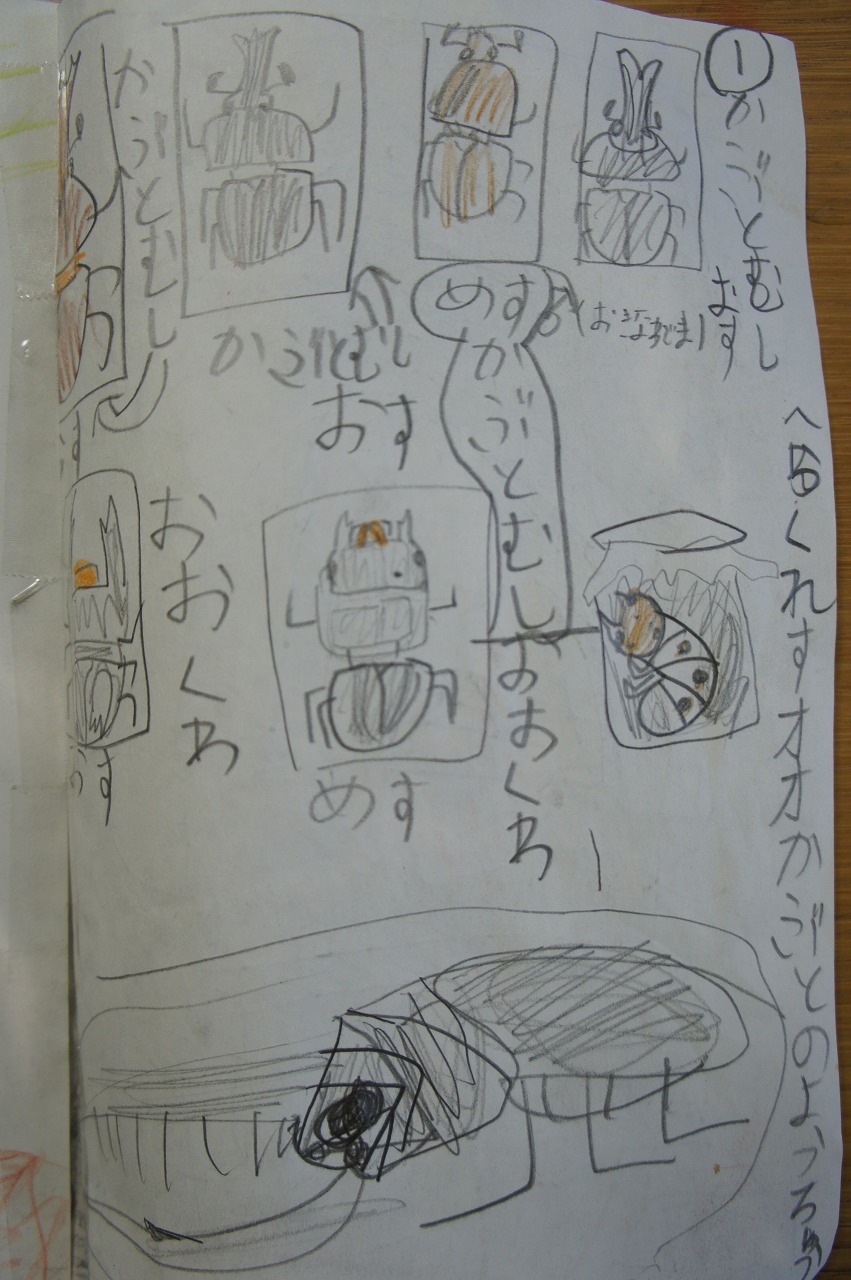 ①かぶとむし
おす
へるくれすオオかぶとのようちゅう
めす
かぶとむし
かぶとむし
おす
かぶとむし
おおくわ
めす
おおくわ